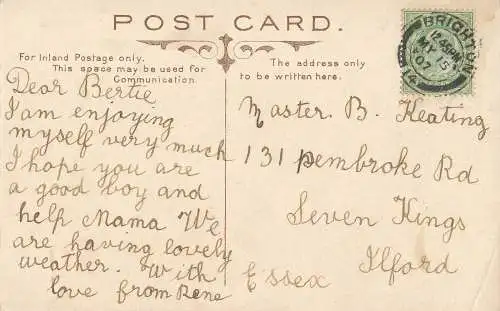 POST CARD.
For Inland Postage only.
This space may be used for
Communication.
The address only
to be written here.
BRIGHTON
12.45PM
MY 15
07
Dear Bertie
I am enjoying
myself very much
I hope you are
a good boy and
help Mama We
are having lovely
weather. With
love from Rene
Master. B. Keating
131 Pembroke Rd
Seven Kings
Ilford
Essex